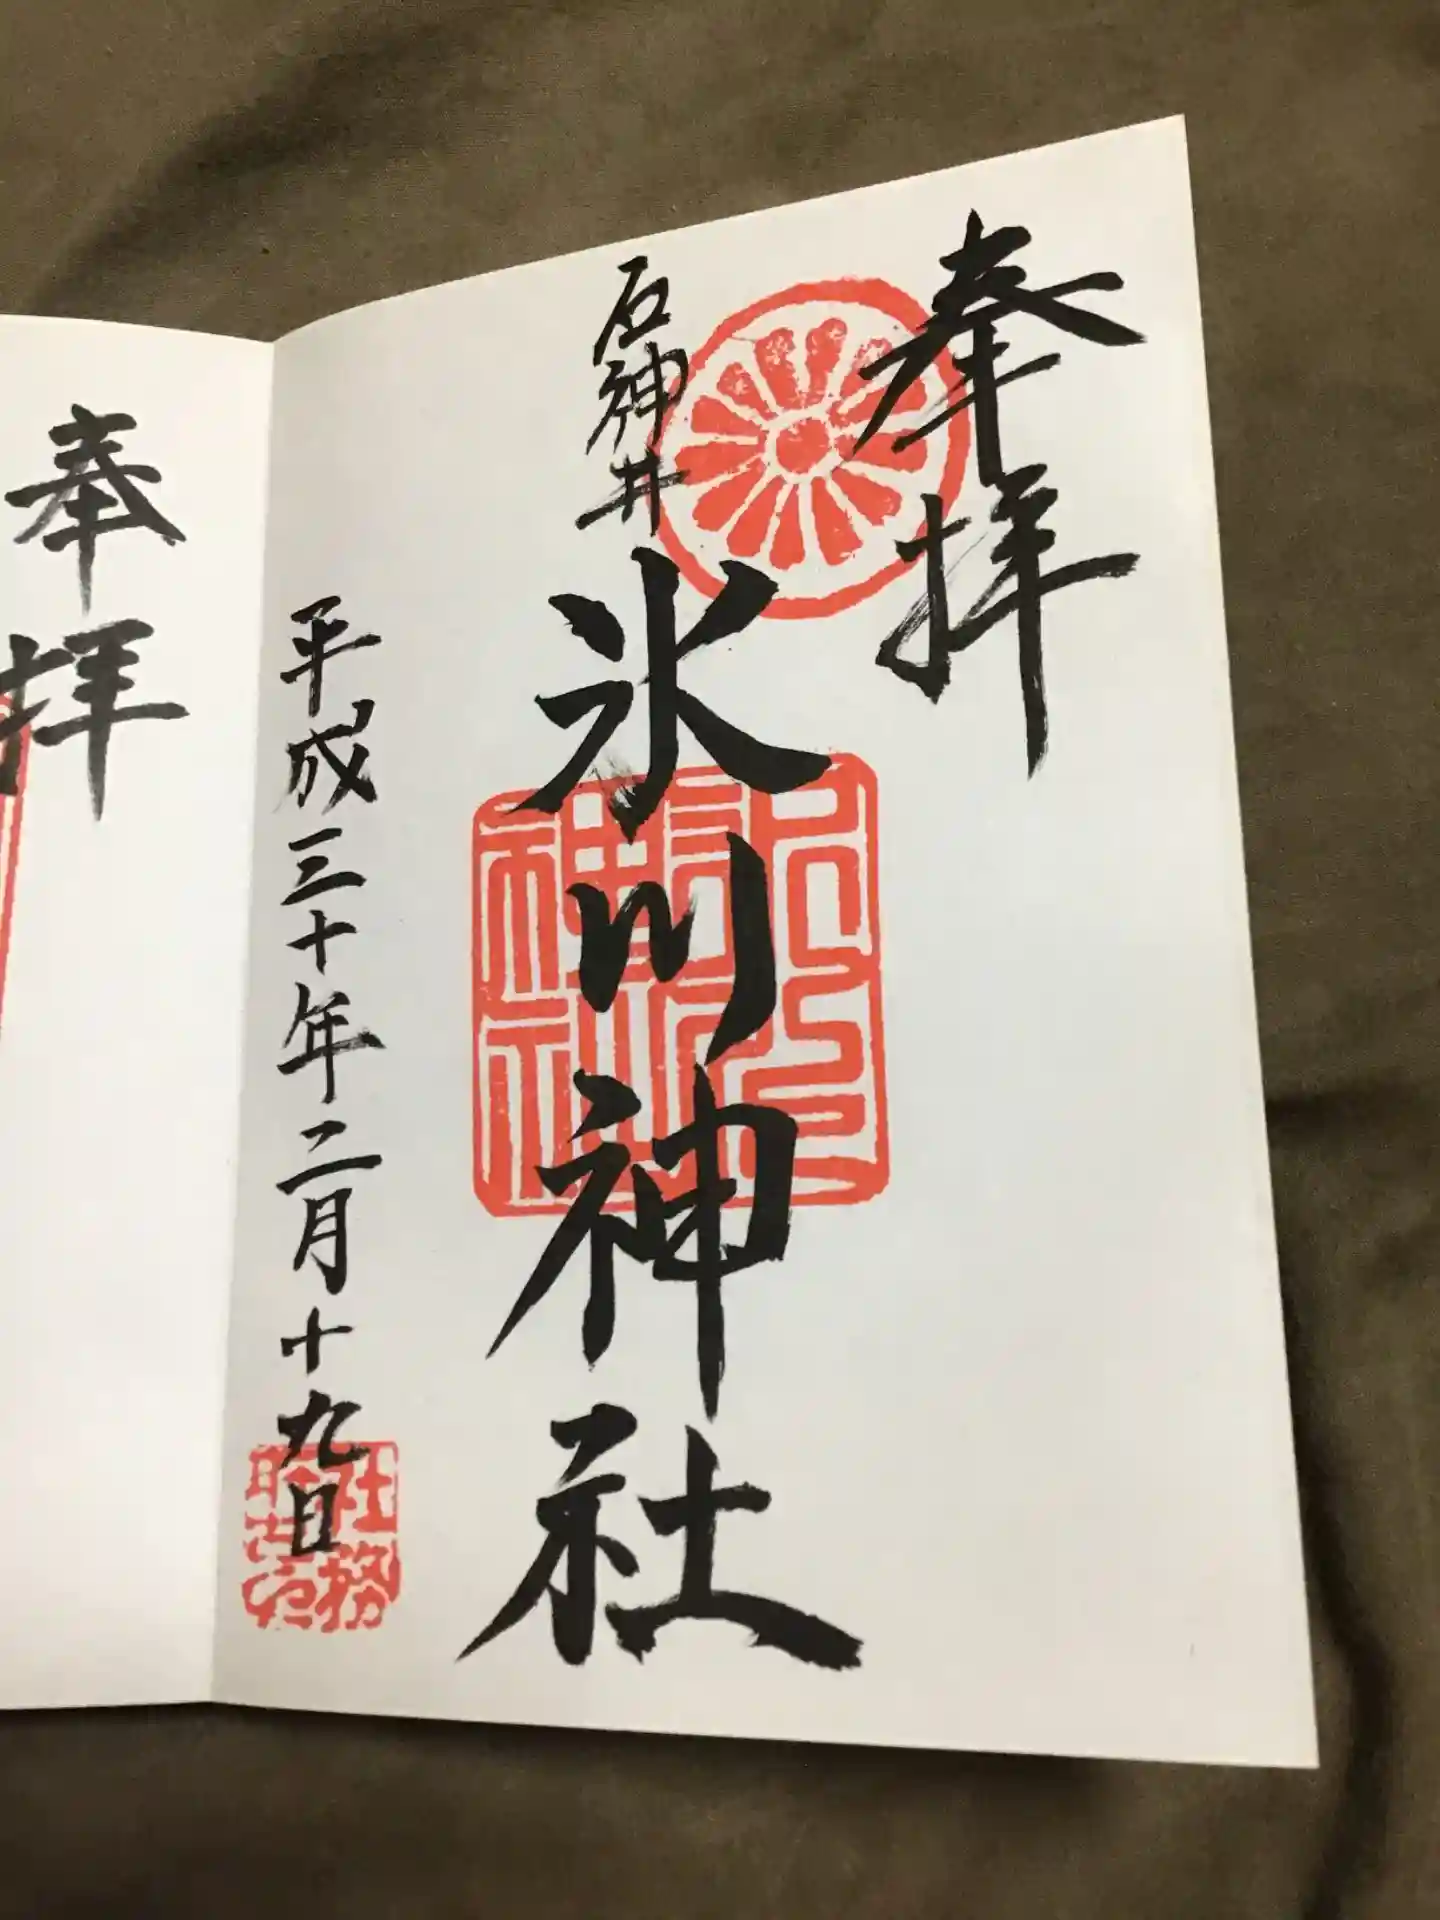 奉拝
石神井
氷川神社
平成三十年二月十九日
社務
奉拝